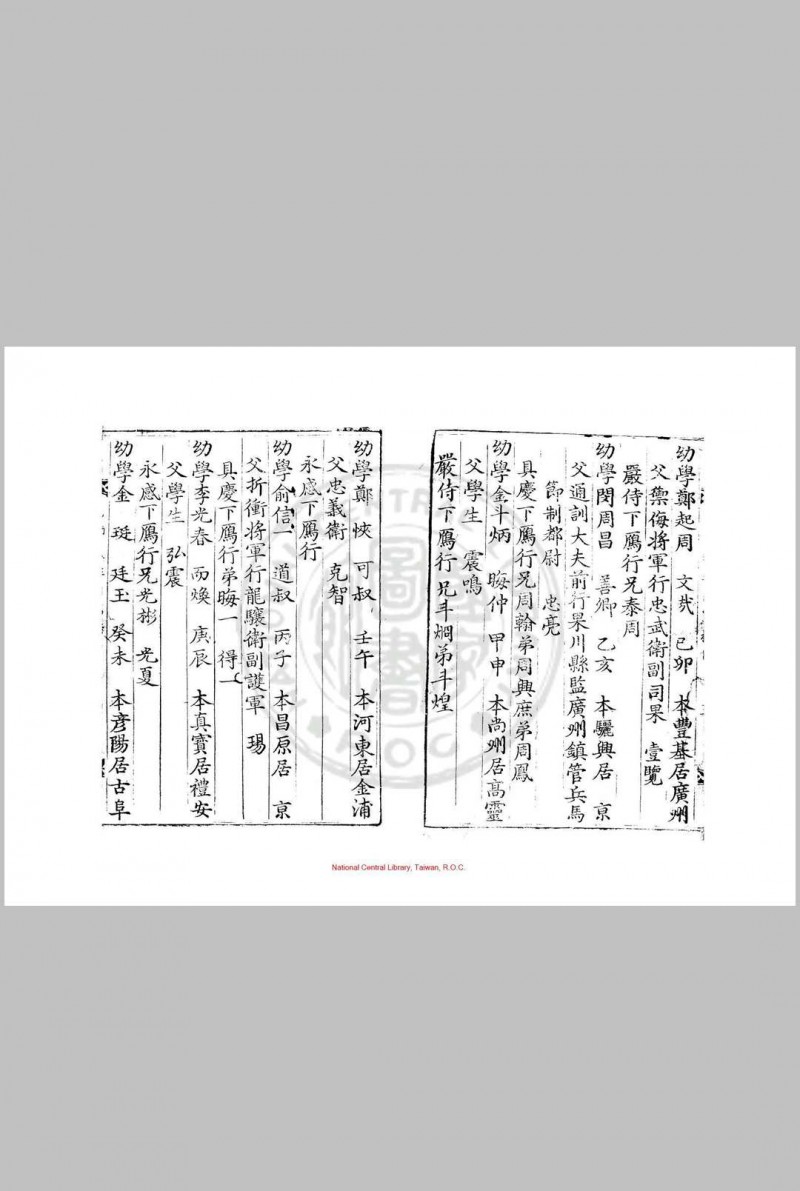 幼學鄭起周 文哉 己卯 本豐基居廣州
父禦侮將軍行忠武衛副司果 壹覽
嚴侍下鴈行兄泰周
幼學閔周昌 善卿 乙亥 本驪興居 京
父通訓大夫前行果川縣監廣州鎮管兵馬
節制都尉 忠亮
具慶下鴈行兄周翰弟周興庶弟周鳳
幼學金斗炳 晦仲 甲申 本尚州居高靈
父學生 震鳴
嚴侍下鴈行兄斗烱弟斗煌
幼學鄭悏 可叔 壬午 本河東居金浦
父忠義衛 克智
永感下鴈行
幼學俞信一 道叔 丙子 本昌原居 京
父折衝將軍行龍驤衛副護軍 瑒
具慶下鴈行弟晦一 得一
幼學李光春 而煥 庚辰 本真寶居禮安
父學生 弘震
永感下鴈行兄光彬 光夏
幼學金 珽 廷玉 癸未 本彦陽居古阜
National Central Library, Taiwan, R.O.C.